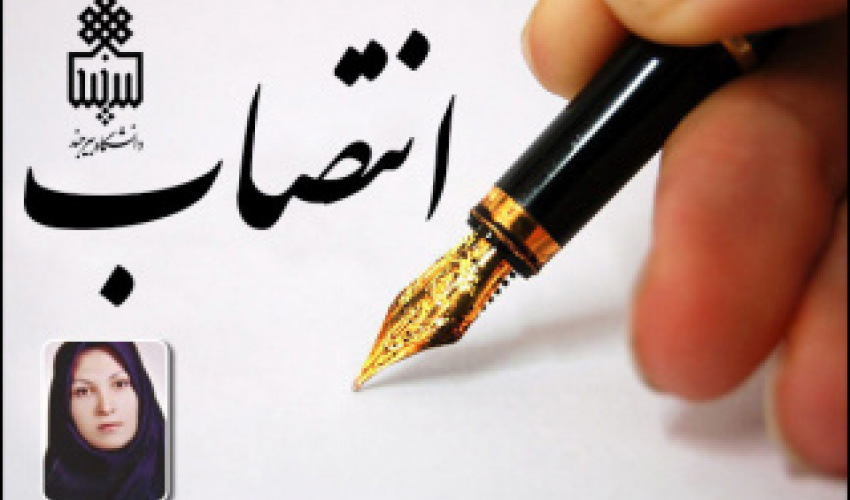 بیرجند
دانشگاه بیرجند
انتصاب